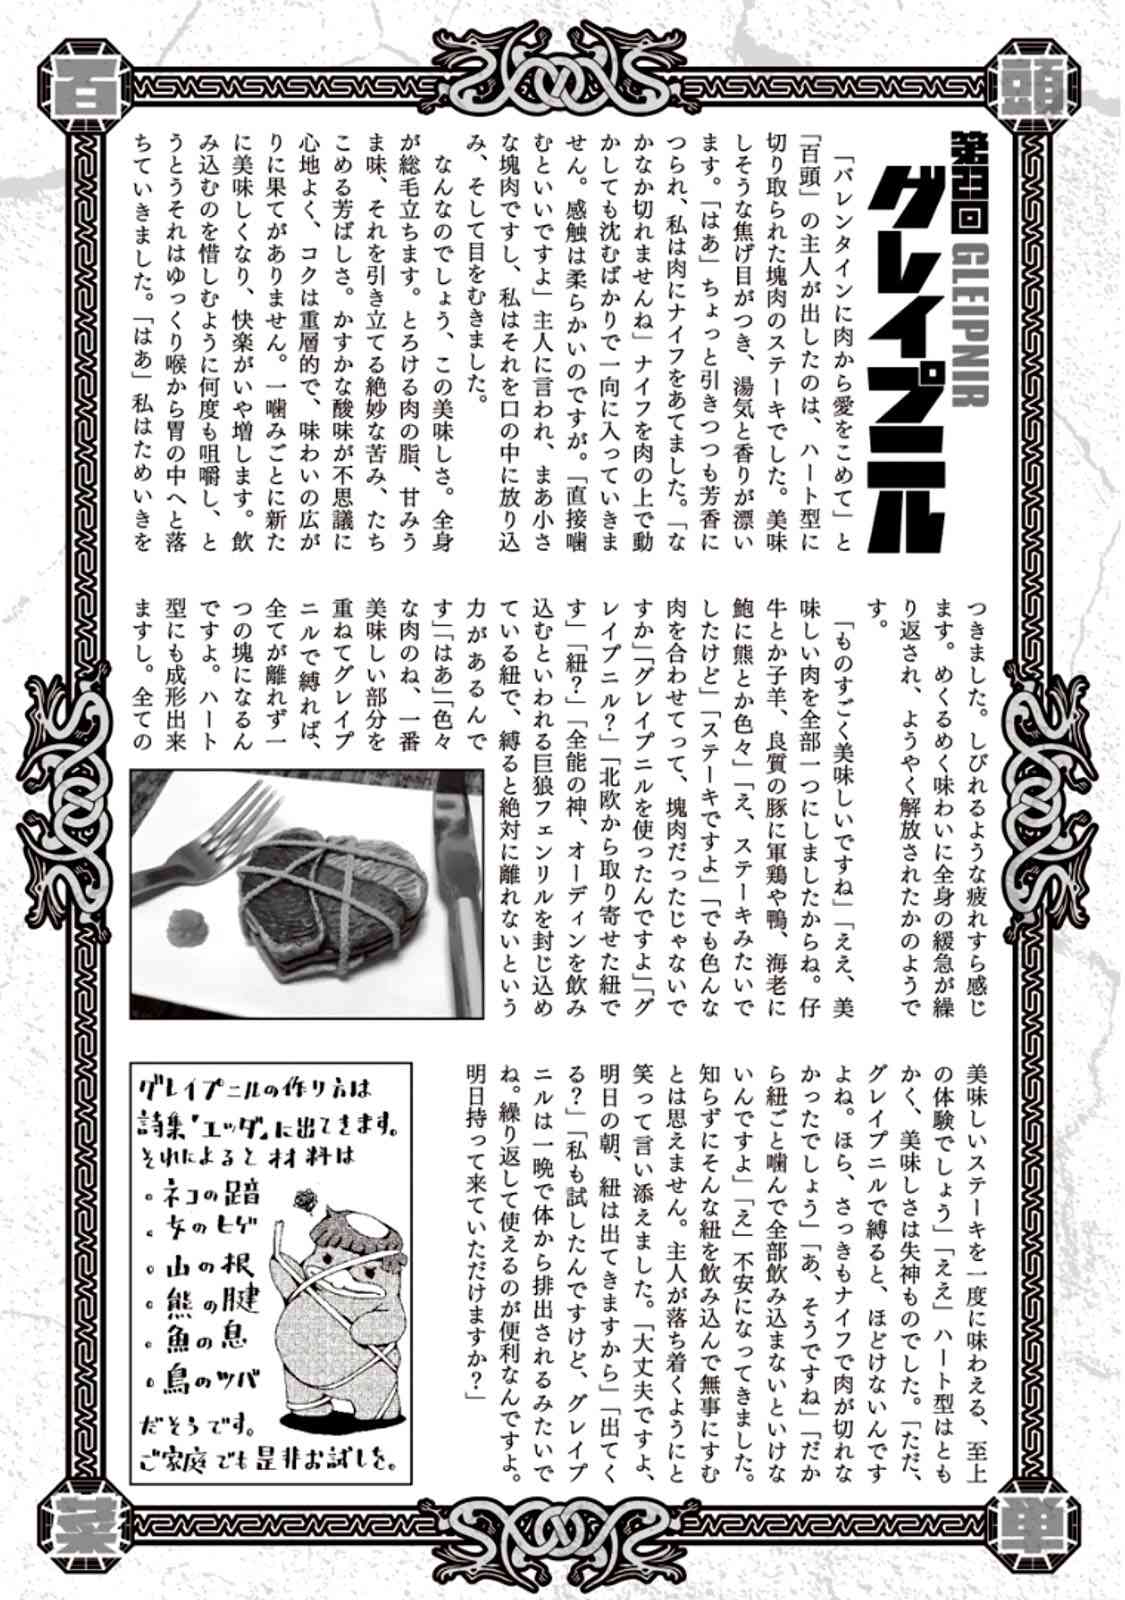 百
頭
第23回
GLEIPNIR
グレイプニル
「バレンタインに肉から愛をこめて」と
『百頭』の主人が出したのは、ハート型に
切り取られた塊肉のステーキでした。美味
しそうな焦げ目がつき、湯気と香りが漂い
ます。「はあ」ちょっと引きつつも芳香に
つられ、私は肉にナイフをあてました。「な
かなか切れませんね」ナイフを肉の上で動
かしても沈むばかりで一向に入っていきま
せん。感触は柔らかいのですが。「直接噛
むといいですよ」主人に言われ、まあ小さ
な塊肉ですし、私はそれを口の中に放り込
み、そして目をむきました。
なんなのでしょう、この美味しさ。全身
が総毛立ちます。とろける肉の脂、甘みう
ま味、それを引き立てる絶妙な苦み、たち
こめる芳ばしさ。かすかな酸味が不思議に
心地よく、コクは重層的で、味わいの広が
りに果てがありません。一噛みごとに新た
に美味しくなり、快楽がいや増します。飲
み込むのを惜しむように何度も咀嚼し、と
うとうそれはゆっくり喉から胃の中へと落
ちていきました。「はあ」私はためいきを
つきました。しびれるような疲れすら感じ
ます。めくるめく味わいに全身の緩急が繰
り返され、ようやく解放されたかのようで
す。
「ものすごく美味しいですね」「ええ、美
味しい肉を全部一つにしましたからね。仔
牛とか子羊、良質の豚に軍鶏や鴨、海老に
鮑に熊とか色々」「え、ステーキみたいで
したけど」「ステーキですよ」「でも色んな
肉を合わせてって、塊肉だったじゃないで
すか」「グレイプニルを使ったんですよ」「グ
レイプニル？」「北欧から取り寄せた紐で
す」「紐？」「全能の神、オーディンを飲み
込むといわれる巨狼フェンリルを封じ込め
ている紐で、縛ると絶対に離れないという
力があるんで
す」「はあ」「色々
な肉のね、一番
美味しい部分を
重ねてグレイプ
ニルで縛れば、
全てが離れず一
つの塊になるん
ですよ。ハート
型にも成形出来
ますし。全ての
美味しいステーキを一度に味わえる、至上
の体験でしょう」「ええ」ハート型はとも
かく、美味しさは失神ものでした。「ただ、
グレイプニルで縛ると、ほどけないんです
よね。ほら、さっきもナイフで肉が切れな
かったでしょう」「あ、そうですね」「だか
ら紐ごと噛んで全部飲み込まないといけな
いんですよ」「え」不安になってきました。
知らずにそんな紐を飲み込んで無事にすむ
とは思えません。主人が落ち着くようにと
笑って言い添えました。「大丈夫ですよ、
明日の朝、紐は出てきますから」「出てく
る？」「私も試したんですけど、グレイプ
ニルは一晩で体から排出されるみたいで
ね。繰り返して使えるのが便利なんですよ。
明日持って来ていただけますか？」
グレイプニルの作り方は
詩集『エッダ』に出てきます。
それによると材料は
。ネコの足音
。女のヒゲ
。山の根
。熊の腱
。魚の息
。鳥のツバ
だそうです。
ご家庭でも是非お試しを。
菜
単